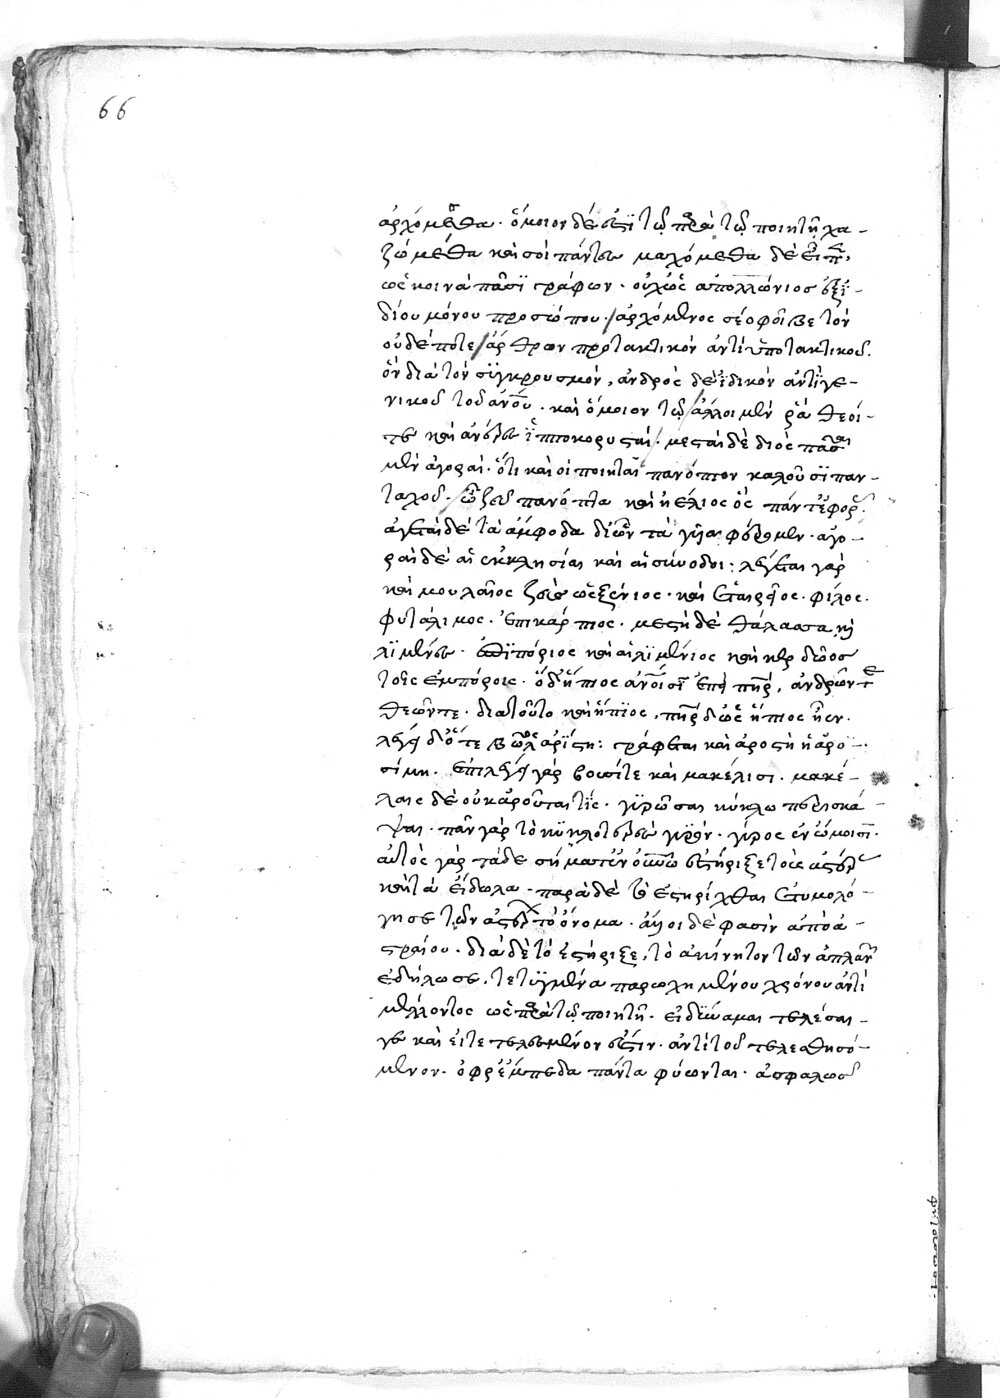 66
ἀρχόμεθα· ὅμοιον δέ ἐστι τῷ παρὰ τῷ ποιητῇ χα-
ζώμεθα καὶ σοὶ πάντες μαχόμεθα δὲ
ὡς κοινὰ πᾶσι γράφων· οὐχ ὡς ἀπολλώνιος ἐξ ἰ-
δίου μόνου προσώπου· ἀρχόμενος σέο φοῖβε τὸν
οὐδέποτε ἄρθρον προτακτικὸν ἀντὶ ὑποτακτικοῦ.
ὃν διὰ τὸν σύγκρουσμόν, ἀνδρὸς δὲ ἰδικὸν ἀντὶ γε-
νικοῦ τοῦ ἀνθρώπου· καὶ ὅμοιον τῷ ἄλλοι μὲν ῥὰ θεοί-
τε καὶ ἀνέρες ἱπποκορυσταί· μεσταὶ δὲ διὸς πᾶσαι
μὲν ἀγοραί· ὅτι καὶ οἱ ποιηταὶ πανόπτην καλοῦσι παν-
ταχοῦ· ὦ ζεῦ πανόπτα καὶ ἠέλιος ὃς πάντ' ἐφορᾷς·
ἀγυιαὶ δὲ τὰ ἄμφοδα δι' ὧν τὰ γυῖα φέρομεν· ἀγο-
ραὶ δὲ αἱ ἐκκλησίαι καὶ αἱ σύνοδοι: λέγεται γὰρ
καὶ βουλαῖος ζεὺς ὡς ξένιος· καὶ ἑταιρεῖος· φίλος·
φυτάλιμος· ἐπικάρπιος· μεστὴ δὲ θάλασσα καὶ
λιμένες· καὶ λιμένιος καὶ κερδῶος
τοῖς ἐμπόροις· ὁ δ' ἤπιος ἀνθρώποισι ἐπεὶ πατὴρ, ἀνδρῶν τε
θεῶν τε· διὰ τοῦτο καὶ ἤπιος, πατὴρ δ' ὣς ἤπιος ἦεν·
λέγει δ' ὅτε βῶλος ἀρίστη: γράφεται καὶ ἄροστὴ ἡ ἀρό-
σιμη· ἐπιλέγει γὰρ βουσίτε καὶ μακέλῃσι· μακέ-
λαις δὲ οὐκ ἀροῦταί τις· γυρῶσαι κύκλῳ περισκά-
ψαι· πᾶν γὰρ τὸ κυκλοτερὲς γυρόν· γυρὸς ἐν ὤμοισιν·
αὐτὸς γὰρ τάδε σήματ' ἐν οὐρανῷ ἐστήριξε τούς ἀστέρας
καὶ τὰ εἴδωλα· παρὰ δὲ τὸ ἐστηρίχθαι ἐτυμολό-
γησε τῶν ἀστέρων τὸ ὄνομα· ἄλλοι δέ φασὶν ἀπὸ ἀ-
στραίου· διὰ δὲ τὸ ἐστήριξε, τὸ ἀκίνητον τῶν ἀπλανῶν
ἐδήλωσε, τετυγμένα παρωχημένου χρόνου ἀντὶ
μέλλοντος ὡς παρὰ τῷ ποιητῇ· εἰ δύναμαι τελέσαι-
γε καὶ εἰ τετελεσμένον ἐστίν· ἀντὶ τοῦ τελεσθησό-
μενον· ὄφρ' ἔμπεδα πάντα φύωνται· ἀσφαλῶς